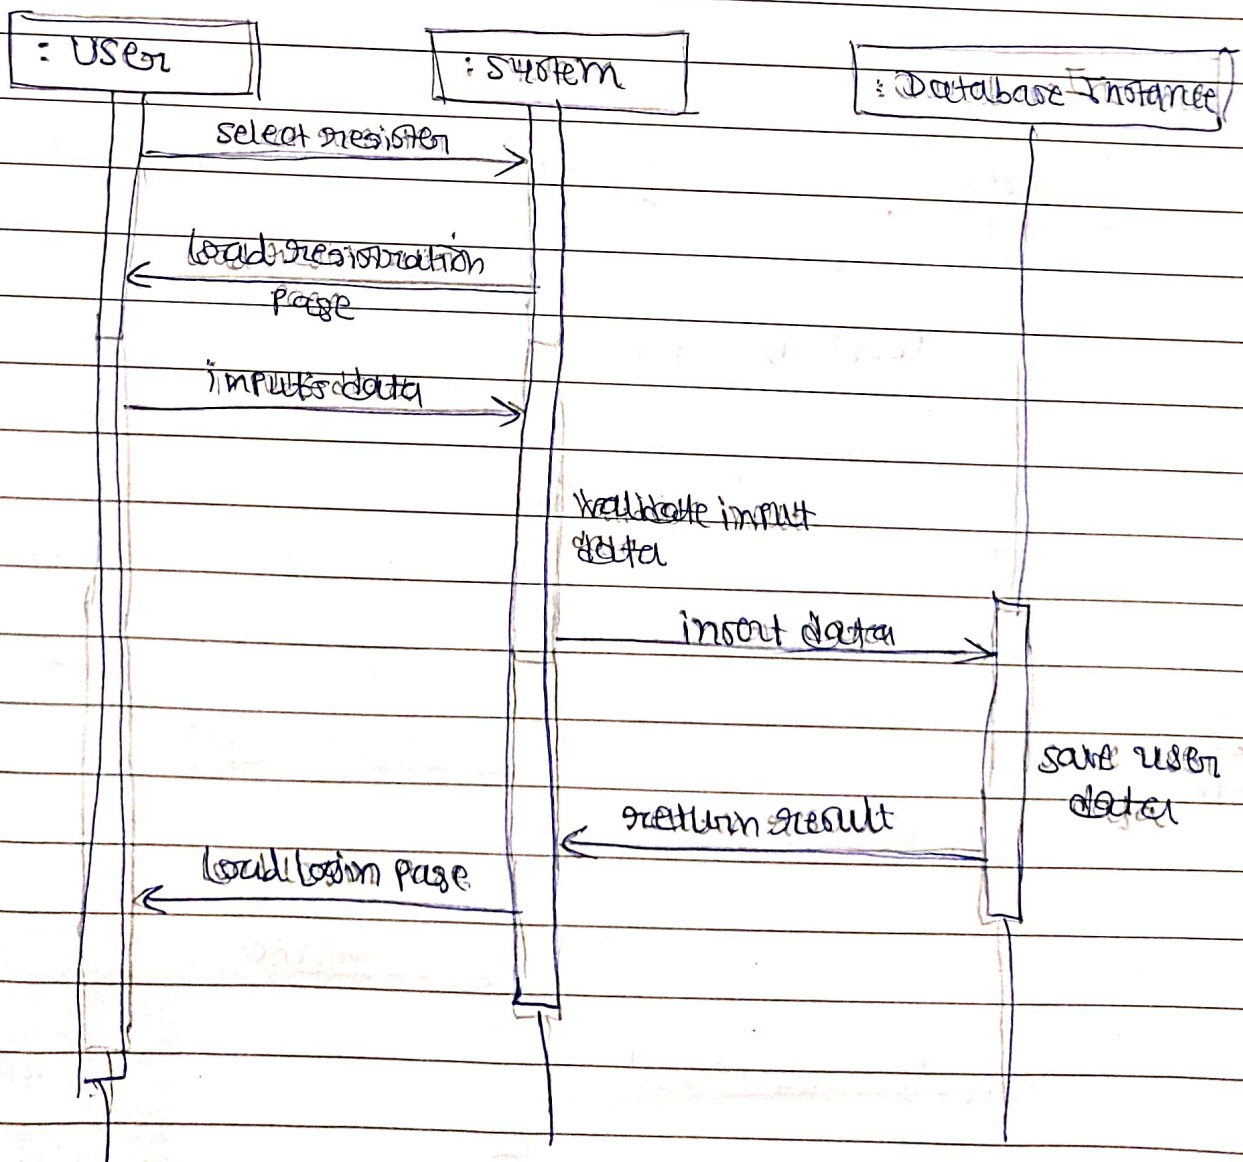 : User
: System
: Database Instance
select register
load registration
page
inputs data
Validate input
data
insert data
save user
data
return result
load login page